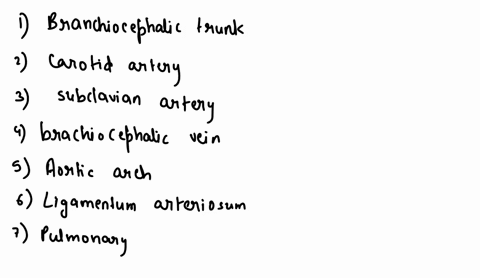 1) Branchiocephalic trunk
2) Carotid artery
3) subclavian artery
4) brachiocephalic vein
5) Aortic arch
6) Ligamentum arteriosum
7) Pulmonary